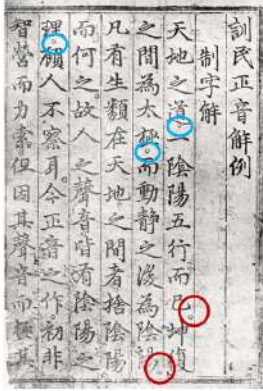 訓民正音解例
制字解
天地之道。一陰陽五行而已。坤復
之間為太極。而動靜之後為陰陽。
凡有生類在天地之間者。捨陰陽
而何之。故人之聲音。皆有陰陽之
理。顧人不察耳。今正音之作。初非
智營而力索。但因其聲音而極其